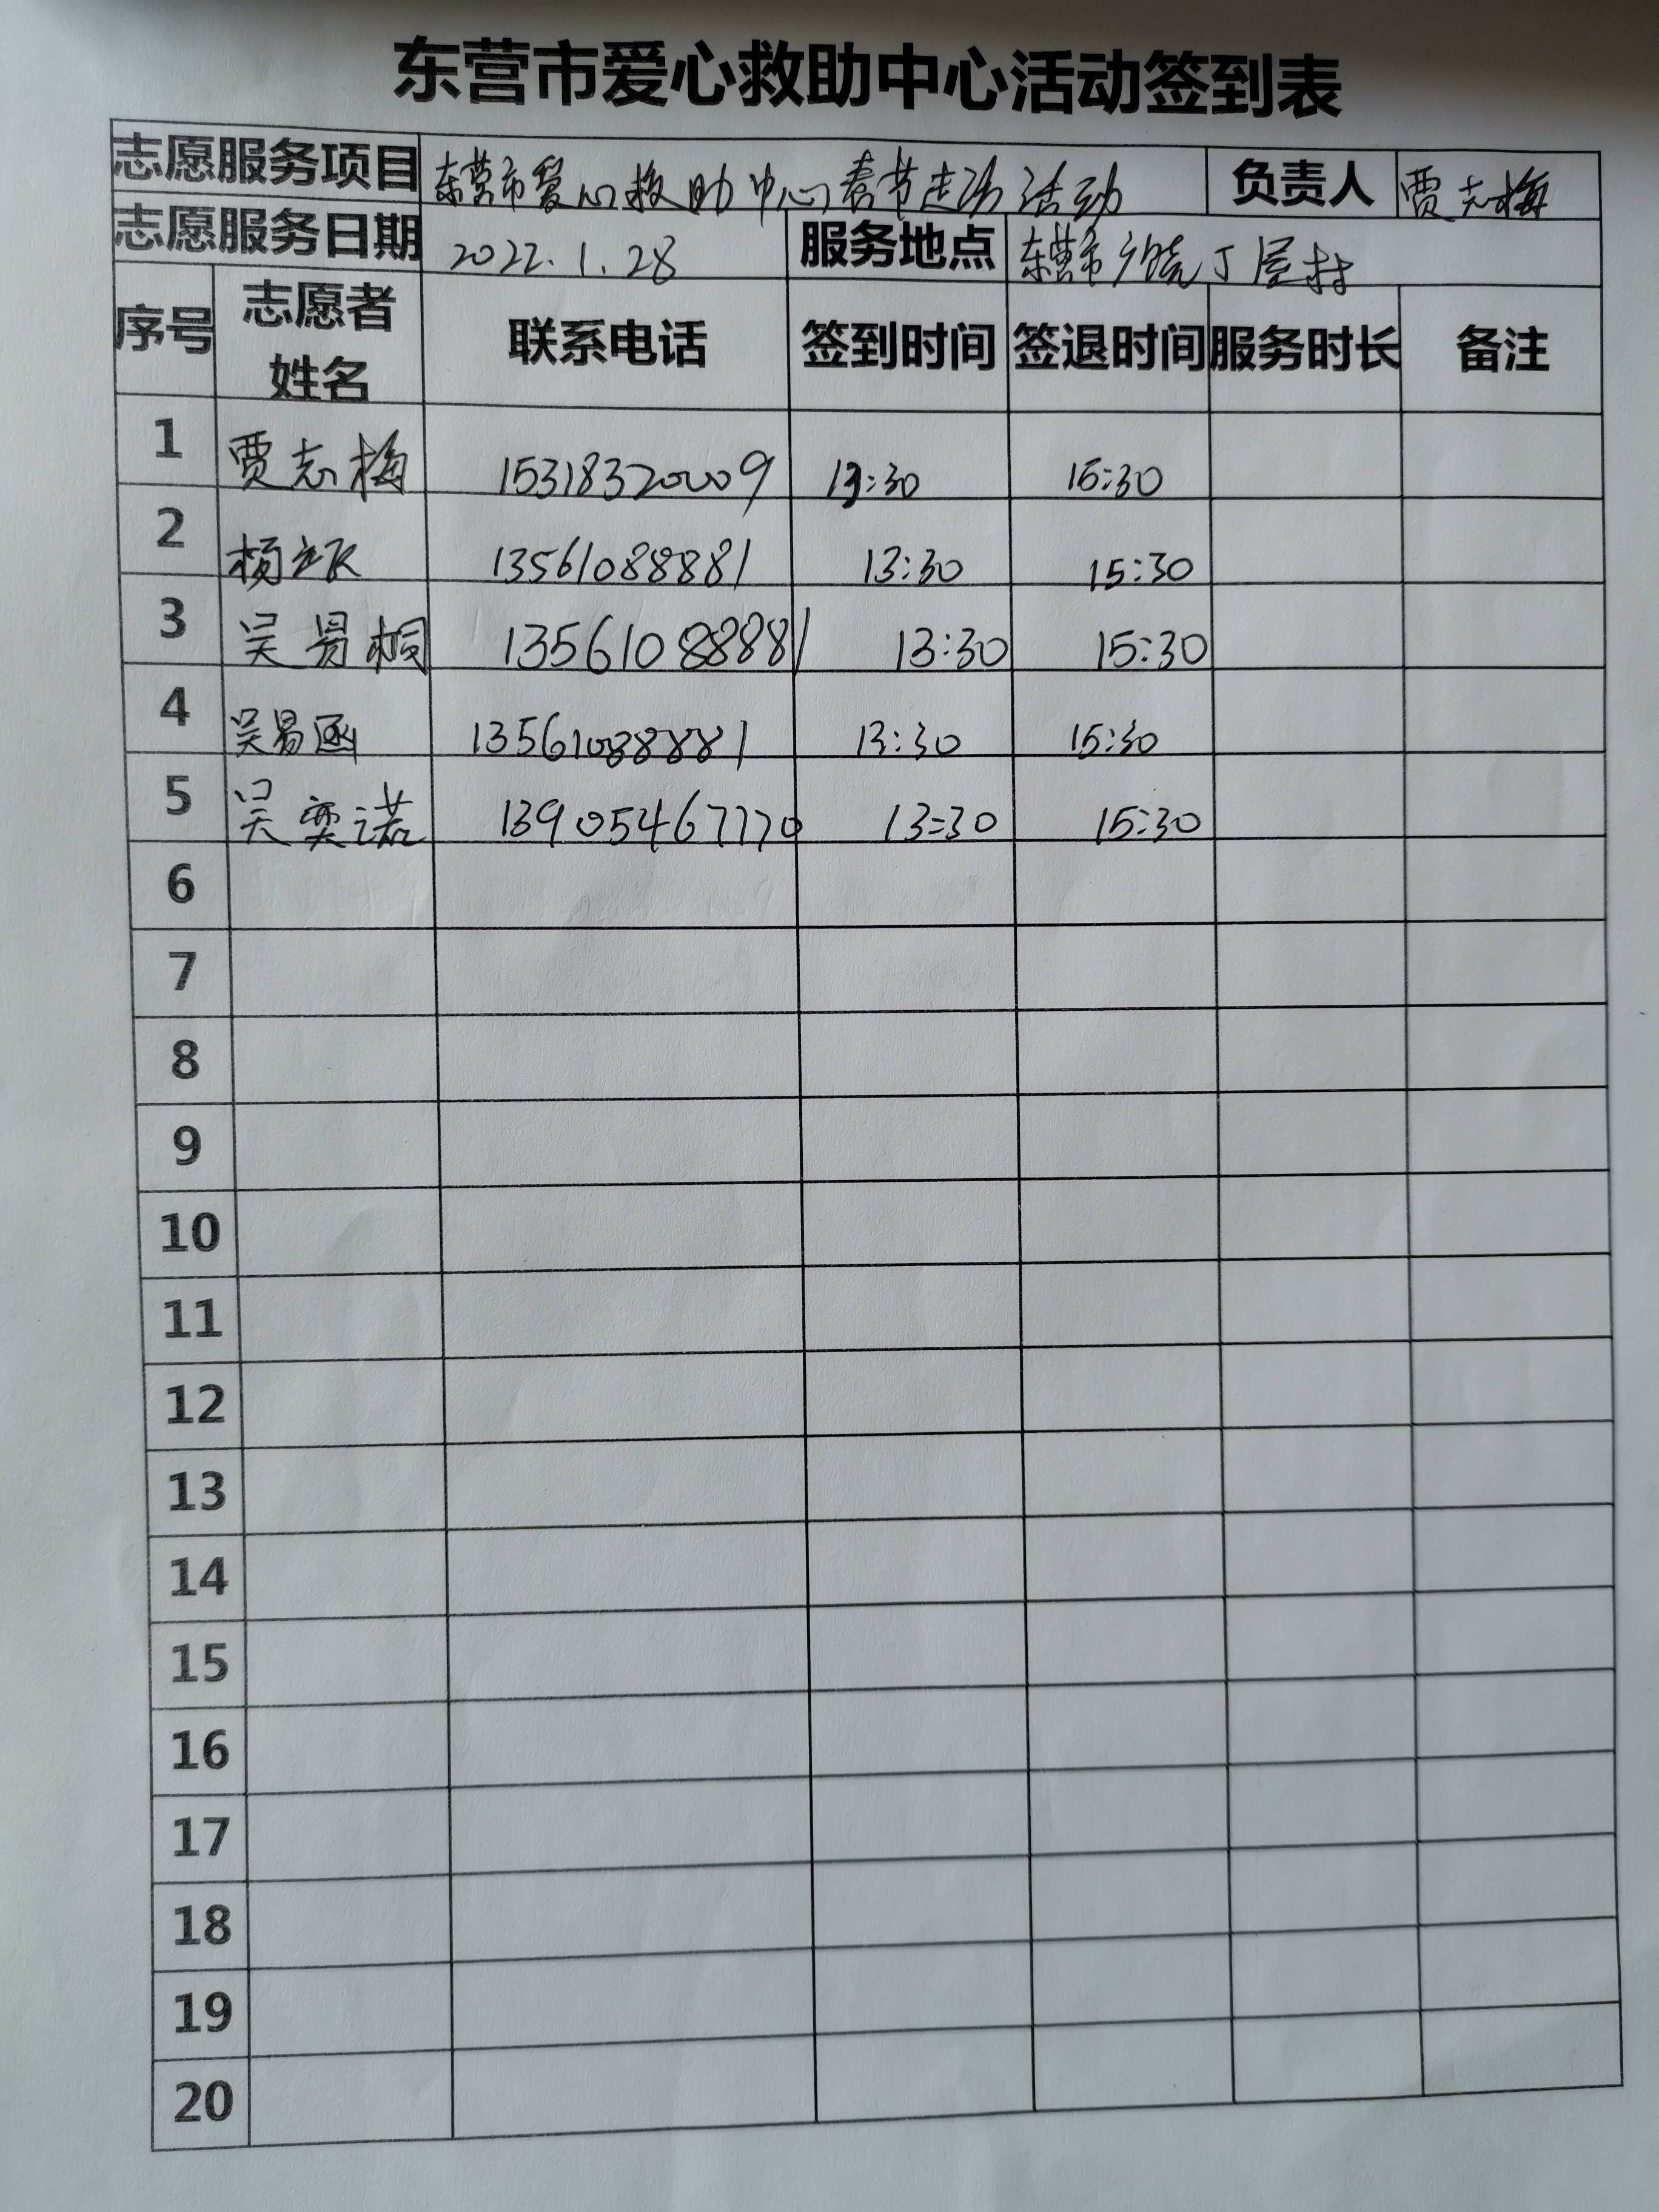 东营市爱心救助中心活动签到表
志愿服务项目 东营市爱心救助中心春节走访活动 负责人 贾志梅
志愿服务日期 2022.1.28 服务地点 东营市广饶丁屋村
序号 志愿者姓名 联系电话 签到时间 签退时间 服务时长 备注
1 贾志梅 15318320009 13:30 15:30
2 杨 13561088881 13:30 15:30
3 吴易桐 13561088881 13:30 15:30
4 吴易函 13561088881 13:30 15:30
5 吴奕诺 13905467770 13:30 15:30
6
7
8
9
10
11
12
13
14
15
16
17
18
19
20